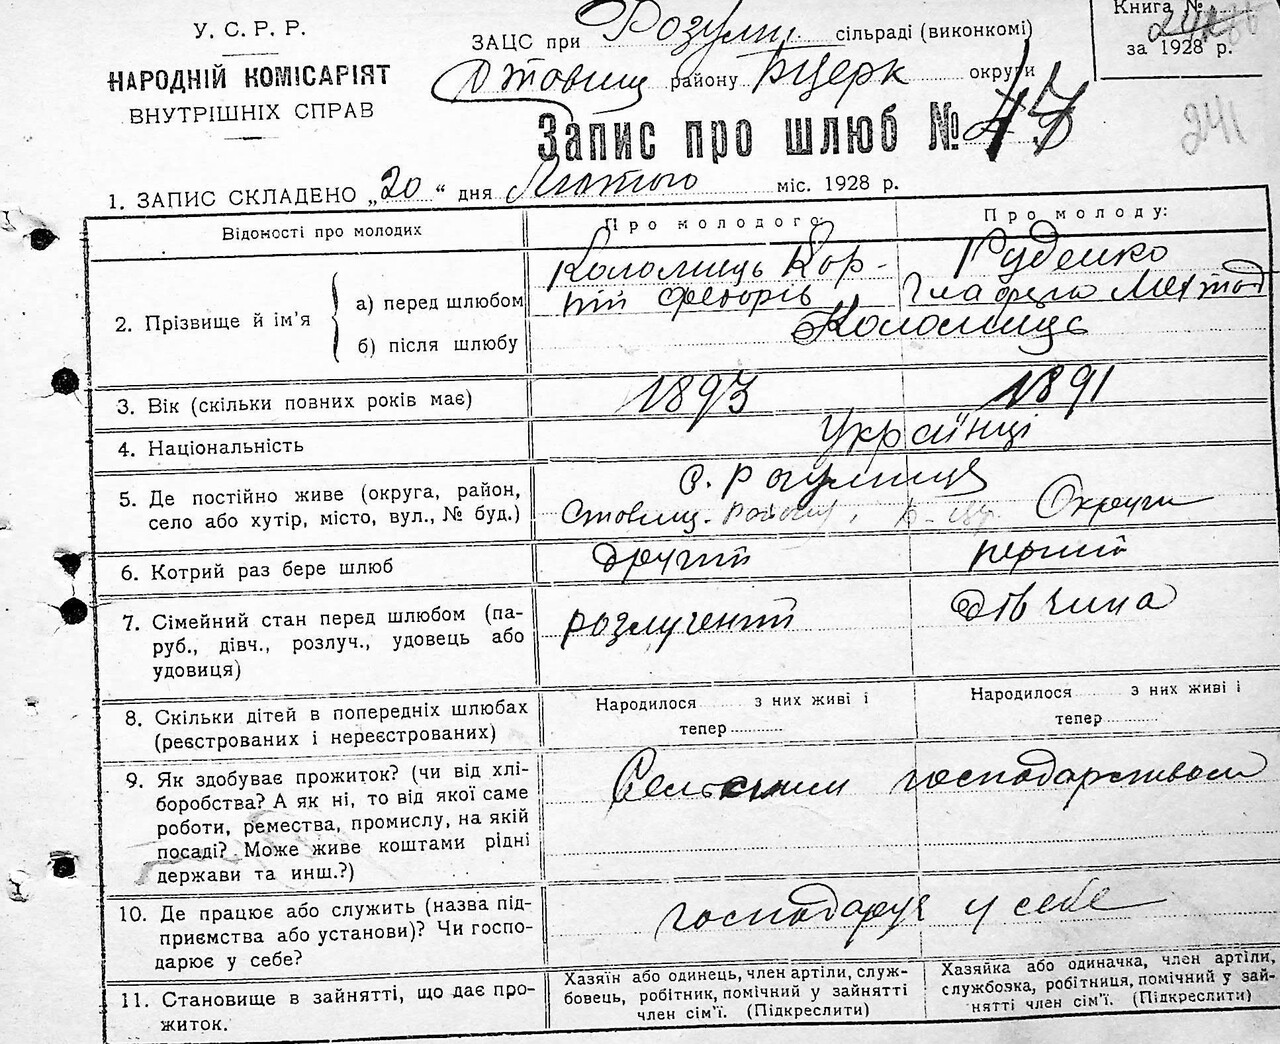 У. С. Р. Р.
НАРОДНІЙ КОМІСАРІЯТ
ВНУТРІШНІХ СПРАВ
ЗАЦС при Розули. сільраді (виконкомі)
Ставищ району БЦерк округи
Книга №
за 1928 р.
241
Запис про шлюб №
1. ЗАПИС СКЛАДЕНО „20“ дня Лютого міс. 1928 р.
Відомості про молодих
Про молодого:
Про молоду:
2. Прізвище й ім’я
а) перед шлюбом
Коломиець Кор-
ній Федорів
Руденко
Глафира Метод
б) після шлюбу
Коломиець
3. Вік (скільки повних років має)
1893
1891
4. Національність
Українці
5. Де постійно живе (округа, район,
село або хутір, місто, вул., № буд.)
с. Розулиця
Ставищ. району, Б-Цр. Округи
6. Котрий раз бере шлюб
другий
перший
7. Сімейний стан перед шлюбом (па-
руб., дівч., розлуч., удовець або
удовиця)
розлучений
дівчина
8. Скільки дітей в попередніх шлюбах
(реєстрованих і нереєстрованих)
Народилося з них живі і
тепер
Народилося з них живі і
тепер
9. Як здобуває прожиток? (чи від хлі-
боробства? А як ні, то від якої саме
роботи, ремества, промислу, на якій
посаді? Може живе коштами рідні
держави та инш.?)
Сельским господарством
10. Де працює або служить (назва під-
приємства або установи)? Чи госпо-
дарює у себе?
господарує у себе
11. Становище в зайнятті, що дає про-
житок.
Хазяїн або одинець, член артіли, служ-
бовець, робітник, помічний у зайнятті
член сім’ї. (Підкреслити)
Хазяйка або одиначка, член артіли,
службоэка, робітниця, помічний у зай-
нятті член сім’ї. (Підкреслити)